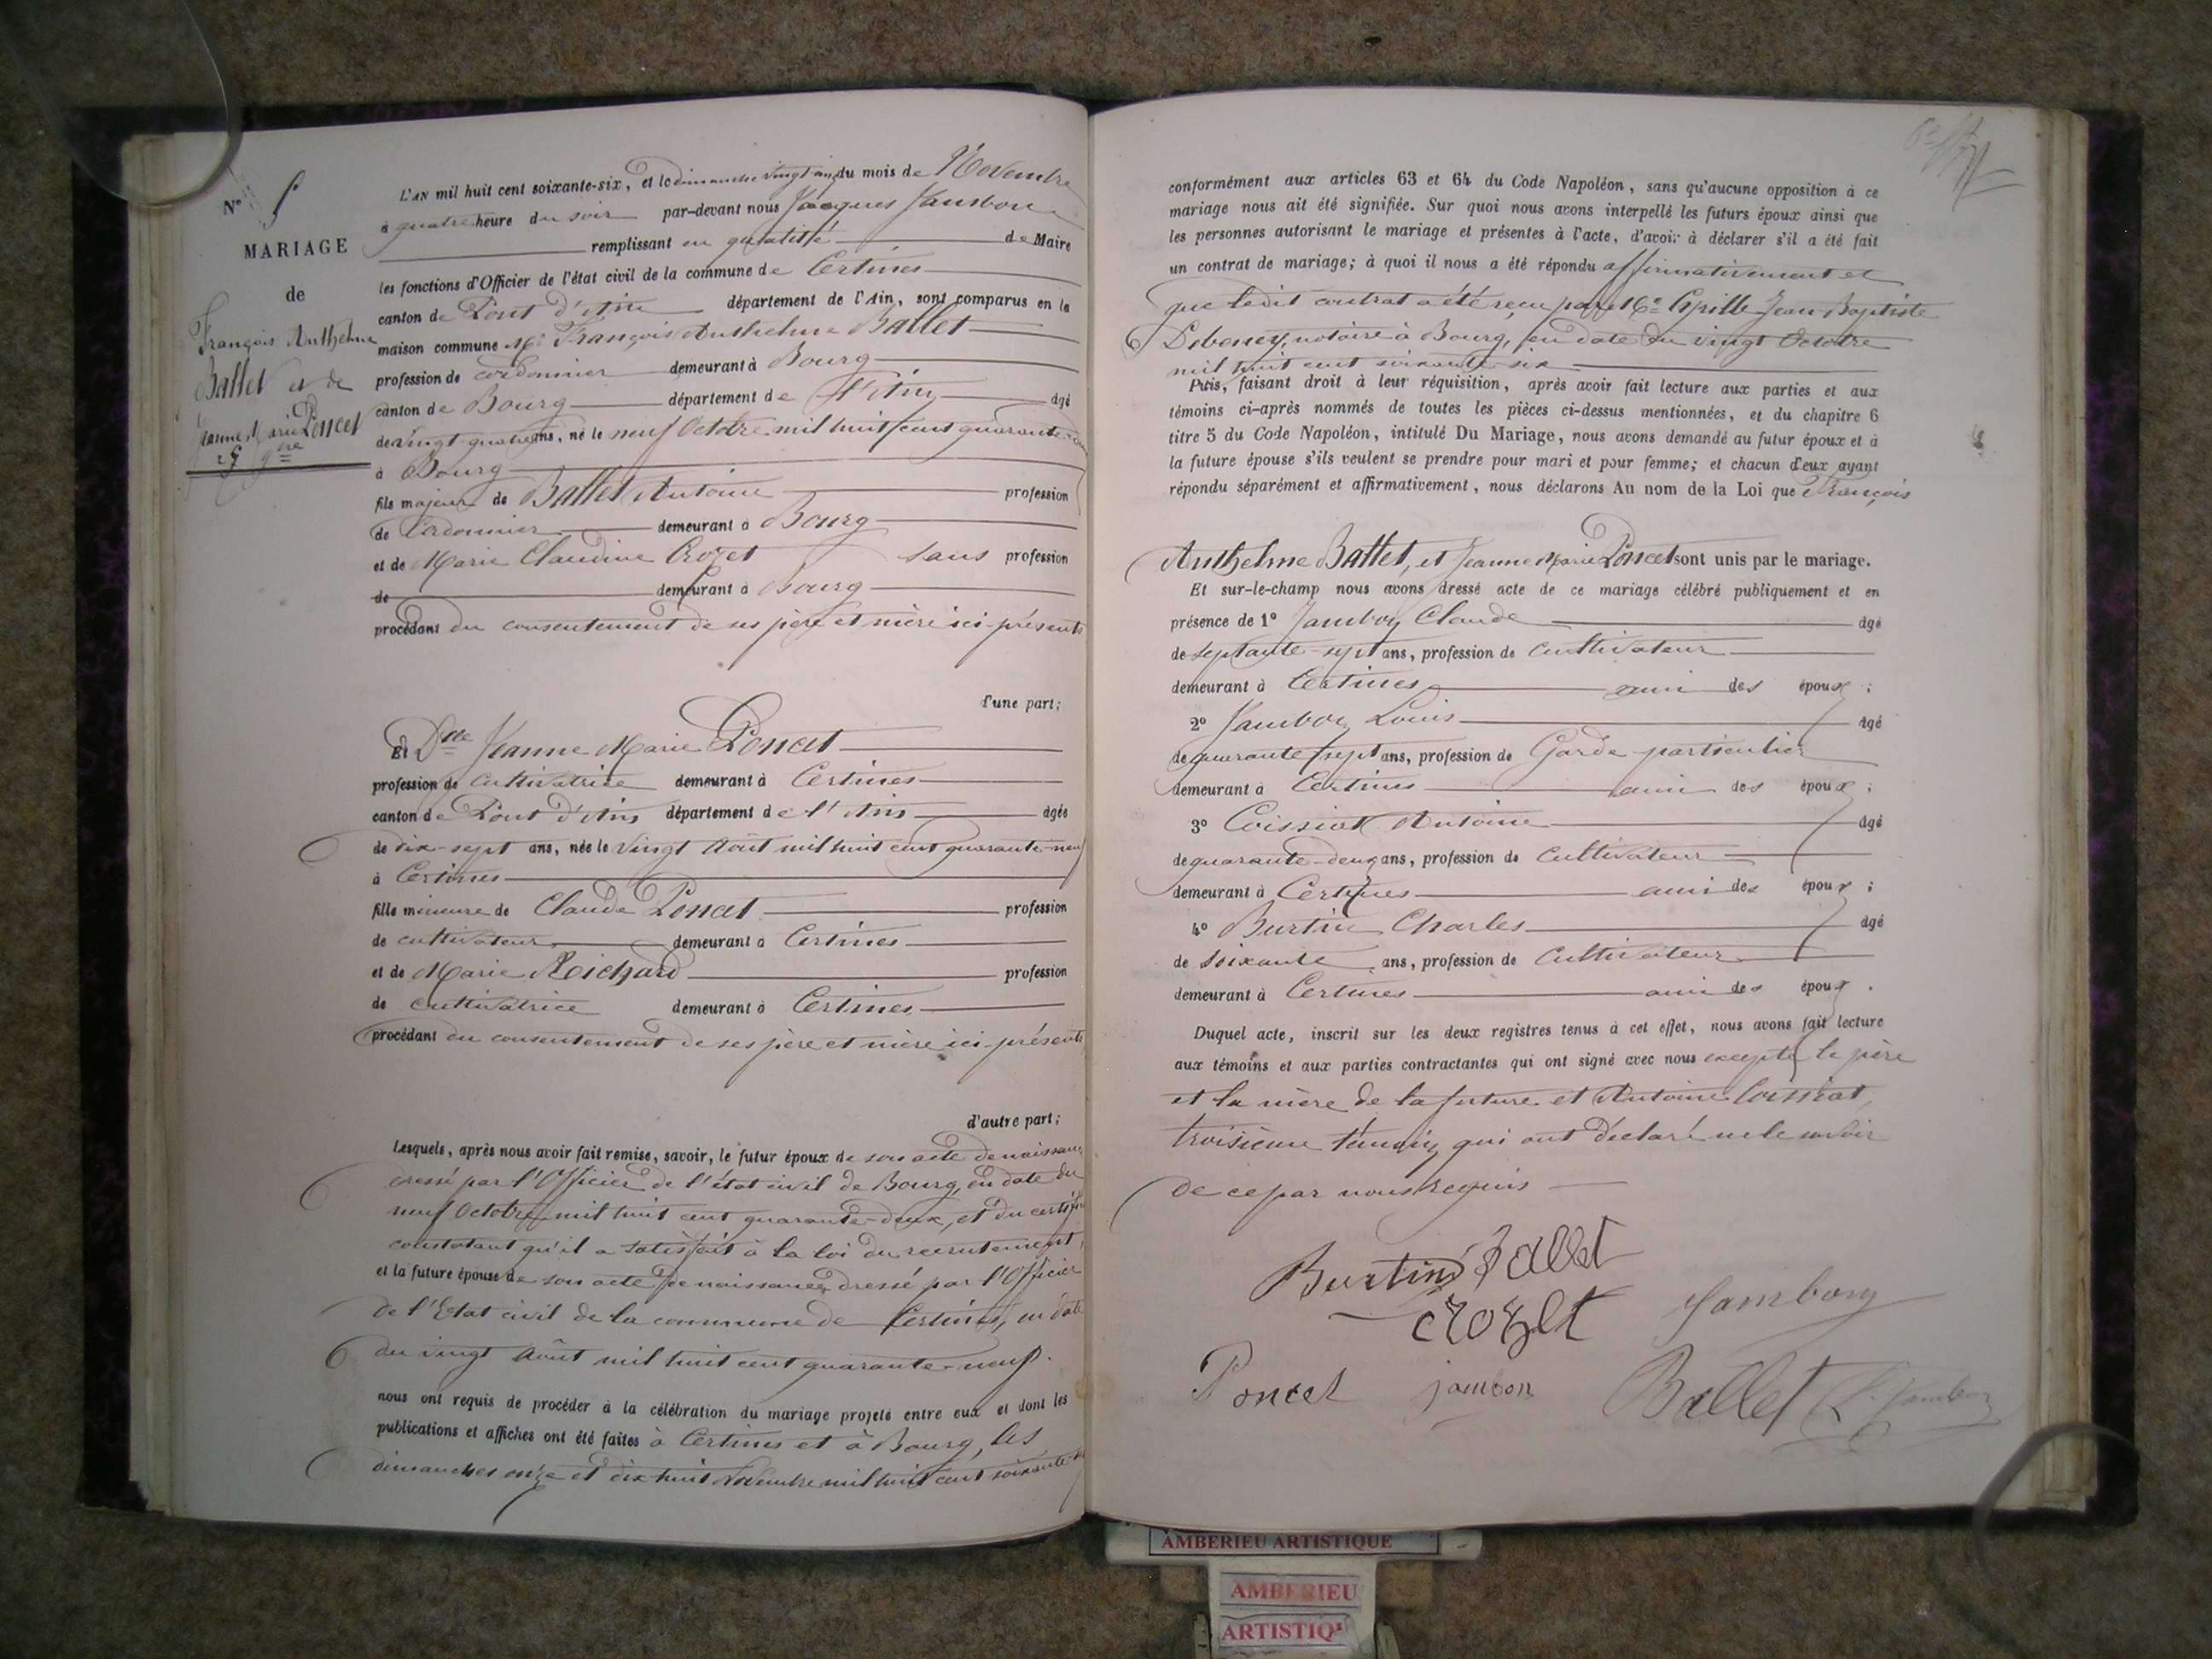 N° 5
MARIAGE
de
François Anthelme
Ballet et de
Jeanne Marie Poncet
25 9bre
L'AN mil huit cent soixante-six, et le dimanche vingt cinq du mois de Novembre
à quatre heure du soir par-devant nous Jacques Jambon
remplissant en qualité de Maire
les fonctions d'Officier de l'état civil de la commune de Certines
canton de Pont d'Ain département de l'Ain, sont comparus en la
maison commune Mr François Anthelme Ballet
profession de cordonnier demeurant à Bourg
canton de Bourg département de l'Ain âgé
de vingt quatre ans, né le neuf Octobre mil huit cent quarante-deux
à Bourg
fils majeur de Ballet Antoine profession
de Cordonnier demeurant à Bourg
et de Marie Claudine Crozet sans profession
de demeurant à Bourg
procédant du consentement de ses père et mère ici-présents
d'une part;
Et Dlle Jeanne Marie Poncet
profession de Cultivatrice demeurant à Certines
canton de Pont d'Ain département de l'Ain âgée
de dix-sept ans, née le vingt Août mil huit cent quarante-neuf
à Certines
fille mineure de Claude Poncet profession
de cultivateur demeurant à Certines
et de Marie Richard profession
de cultivatrice demeurant à Certines
procédant du consentement de ses père et mère ici-présents
d'autre part;
Lesquels, après nous avoir fait remise, savoir, le futur époux de son acte de naissance
dressé par l'Officier de l'état civil de Bourg, en date du
neuf Octobre mil huit cent quarante-deux, et du certificat
constatant qu'il a satisfait à la loi du recrutement,
et la future épouse de son acte de naissance dressé par l'Officier
de l'Etat civil de la commune de Certines, en date
du vingt Août mil huit cent quarante-neuf.
nous ont requis de procéder à la célébration du mariage projeté entre eux et dont les
publications et affiches ont été faites à Certines et à Bourg, les
dimanches onze et dix huit Novembre mil huit cent soixante-six
conformément aux articles 63 et 64 du Code Napoléon, sans qu'aucune opposition à ce
mariage nous ait été signifiée. Sur quoi nous avons interpellé les futurs époux ainsi que
les personnes autorisant le mariage et présentes à l'acte, d'avoir à déclarer s'il a été fait
un contrat de mariage; à quoi il nous a été répondu affirmativement et
que ledit contrat a été reçu par Me Jean-Baptiste
Debeney, notaire à Bourg, en date du vingt Octobre
mil huit cent soixante six
Puis, faisant droit à leur réquisition, après avoir fait lecture aux parties et aux
témoins ci-après nommés de toutes les pièces ci-dessus mentionnées, et du chapitre 6
titre 5 du Code Napoléon, intitulé Du Mariage, nous avons demandé au futur époux et à
la future épouse s'ils veulent se prendre pour mari et pour femme; et chacun d'eux ayant
répondu séparément et affirmativement, nous déclarons Au nom de la Loi que François
Anthelme Ballet, et Jeanne Marie Poncet sont unis par le mariage.
Et sur-le-champ nous avons dressé acte de ce mariage célébré publiquement et en
présence de 1° Jambon Claude âgé
de septante-sept ans, profession de Cultivateur
demeurant à Certines ami des époux ;
2° Jambon Louis âgé
de quarante sept ans, profession de Garde particulier
demeurant à Certines ami des époux ;
3° Coissiat Antoine âgé
de quarante-deux ans, profession de Cultivateur
demeurant à Certines ami des époux ;
4° Burtin Charles âgé
de soixante ans, profession de Cultivateur
demeurant à Certines ami des époux .
Duquel acte, inscrit sur les deux registres tenus à cet effet, nous avons fait lecture
aux témoins et aux parties contractantes qui ont signé avec nous excepté le père
et la mère de la future et Antoine Coissiat,
troisième témoin, qui ont déclaré ne le savoir
de ce par nous requis
Burtin Ballet
crozet Jambon
Poncet jambon Ballet L. Jambon
AMBERIEU ARTISTIQUE
AMBERIEU
ARTISTIQU